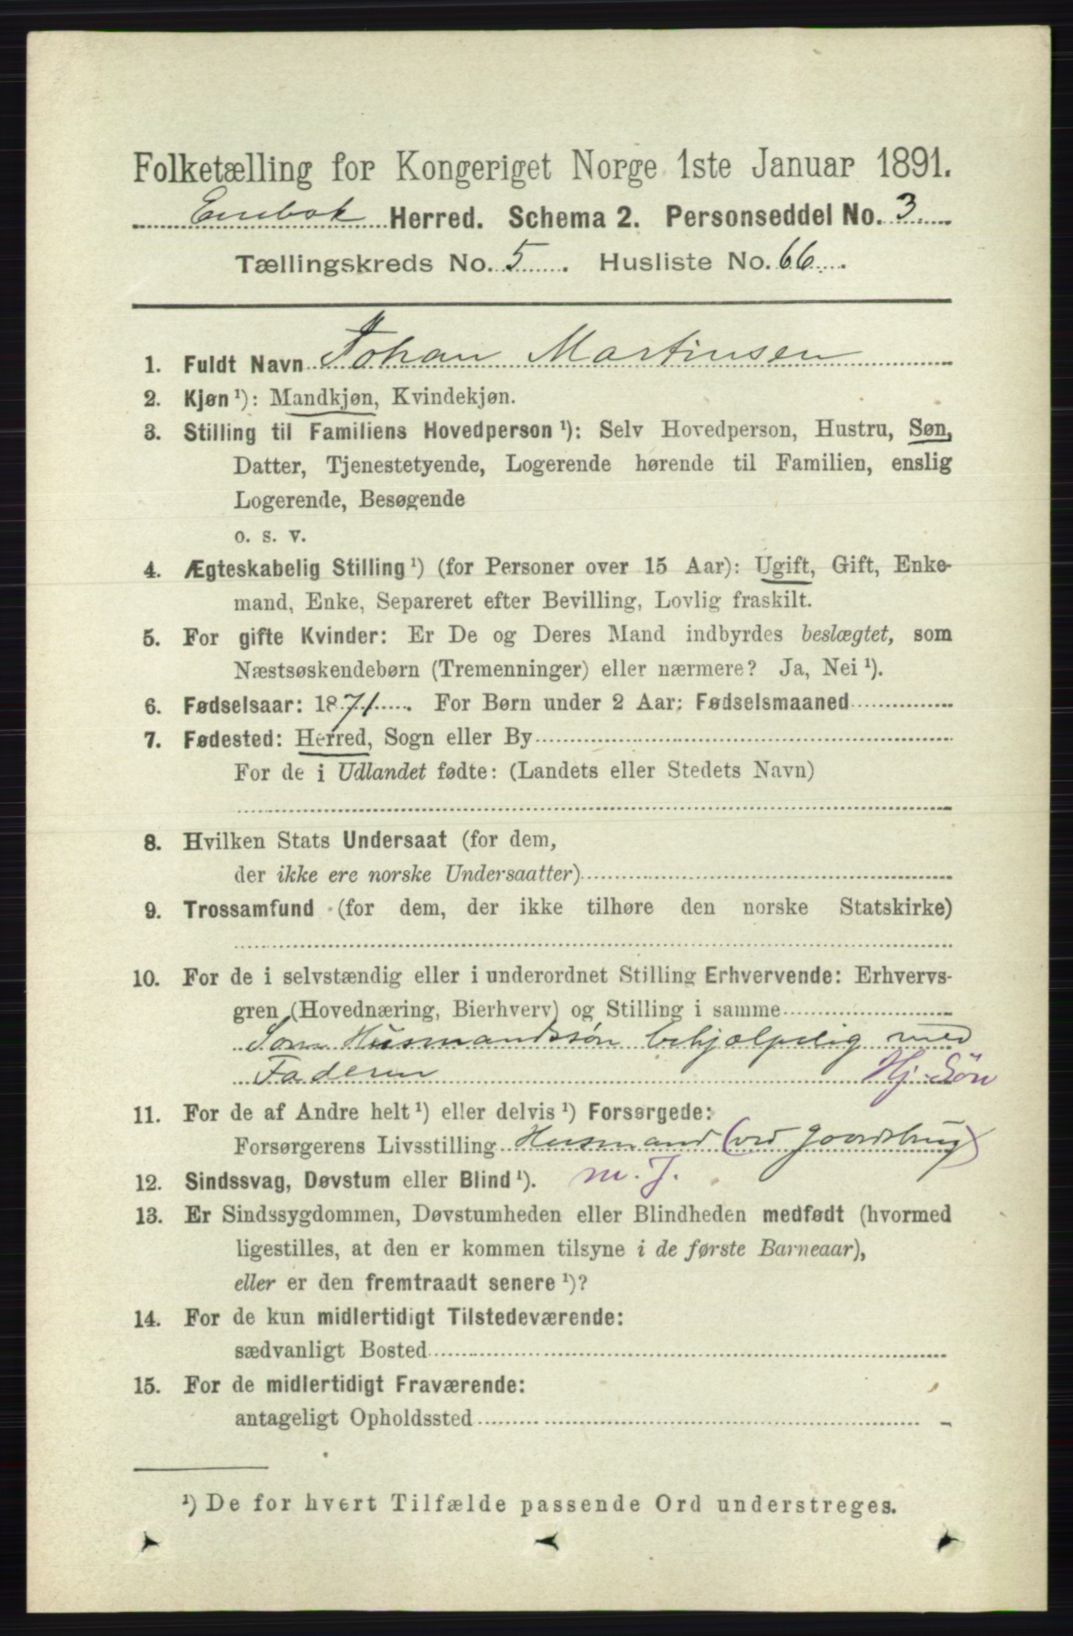 Folketælling for Kongeriget Norge 1ste Januar 1891.
Enebak Herred. Schema 2. Personseddel No. 3
Tællingskreds No. 5. Husliste No. 66.
1. Fuldt Navn Johan Martinsen
2. Kjøn ¹): Mandkjøn, Kvindekjøn.
3. Stilling til Familiens Hovedperson ¹): Selv Hovedperson, Hustru, Søn,
Datter, Tjenestetyende, Logerende hørende til Familien, enslig
Logerende, Besøgende
o. s. v.
4. Ægteskabelig Stilling ¹) (for Personer over 15 Aar): Ugift, Gift, Enke-
mand, Enke, Separeret efter Bevilling, Lovlig fraskilt.
5. For gifte Kvinder: Er De og Deres Mand indbyrdes beslægtet, som
Næstsøskendebørn (Tremenninger) eller nærmere? Ja, Nei ¹).
6. Fødselsaar: 1871. For Børn under 2 Aar: Fødselsmaaned
7. Fødested: Herred, Sogn eller By
For de i Udlandet fødte: (Landets eller Stedets Navn)
8. Hvilken Stats Undersaat (for dem,
der ikke ere norske Undersaatter)
9. Trossamfund (for dem, der ikke tilhøre den norske Statskirke)
10. For de i selvstændig eller i underordnet Stilling Erhvervende: Erhvervs-
gren (Hovednæring, Bierhverv) og Stilling i samme
Som Husmandssøn behjælpelig med
Faderen Hj. Søn
11. For de af Andre helt ¹) eller delvis ¹) Forsørgede:
Forsørgerens Livsstilling Husmand (ved Gaardsbrug)
12. Sindssvag, Døvstum eller Blind ¹). m. J.
13. Er Sindssygdommen, Døvstumheden eller Blindheden medfødt (hvormed
ligestilles, at den er kommen tilsyne i de første Barneaar),
eller er den fremtraadt senere ¹)?
14. For de kun midlertidigt Tilstedeværende:
sædvanligt Bosted
15. For de midlertidigt Fraværende:
antageligt Opholdssted
¹) De for hvert Tilfælde passende Ord understreges.